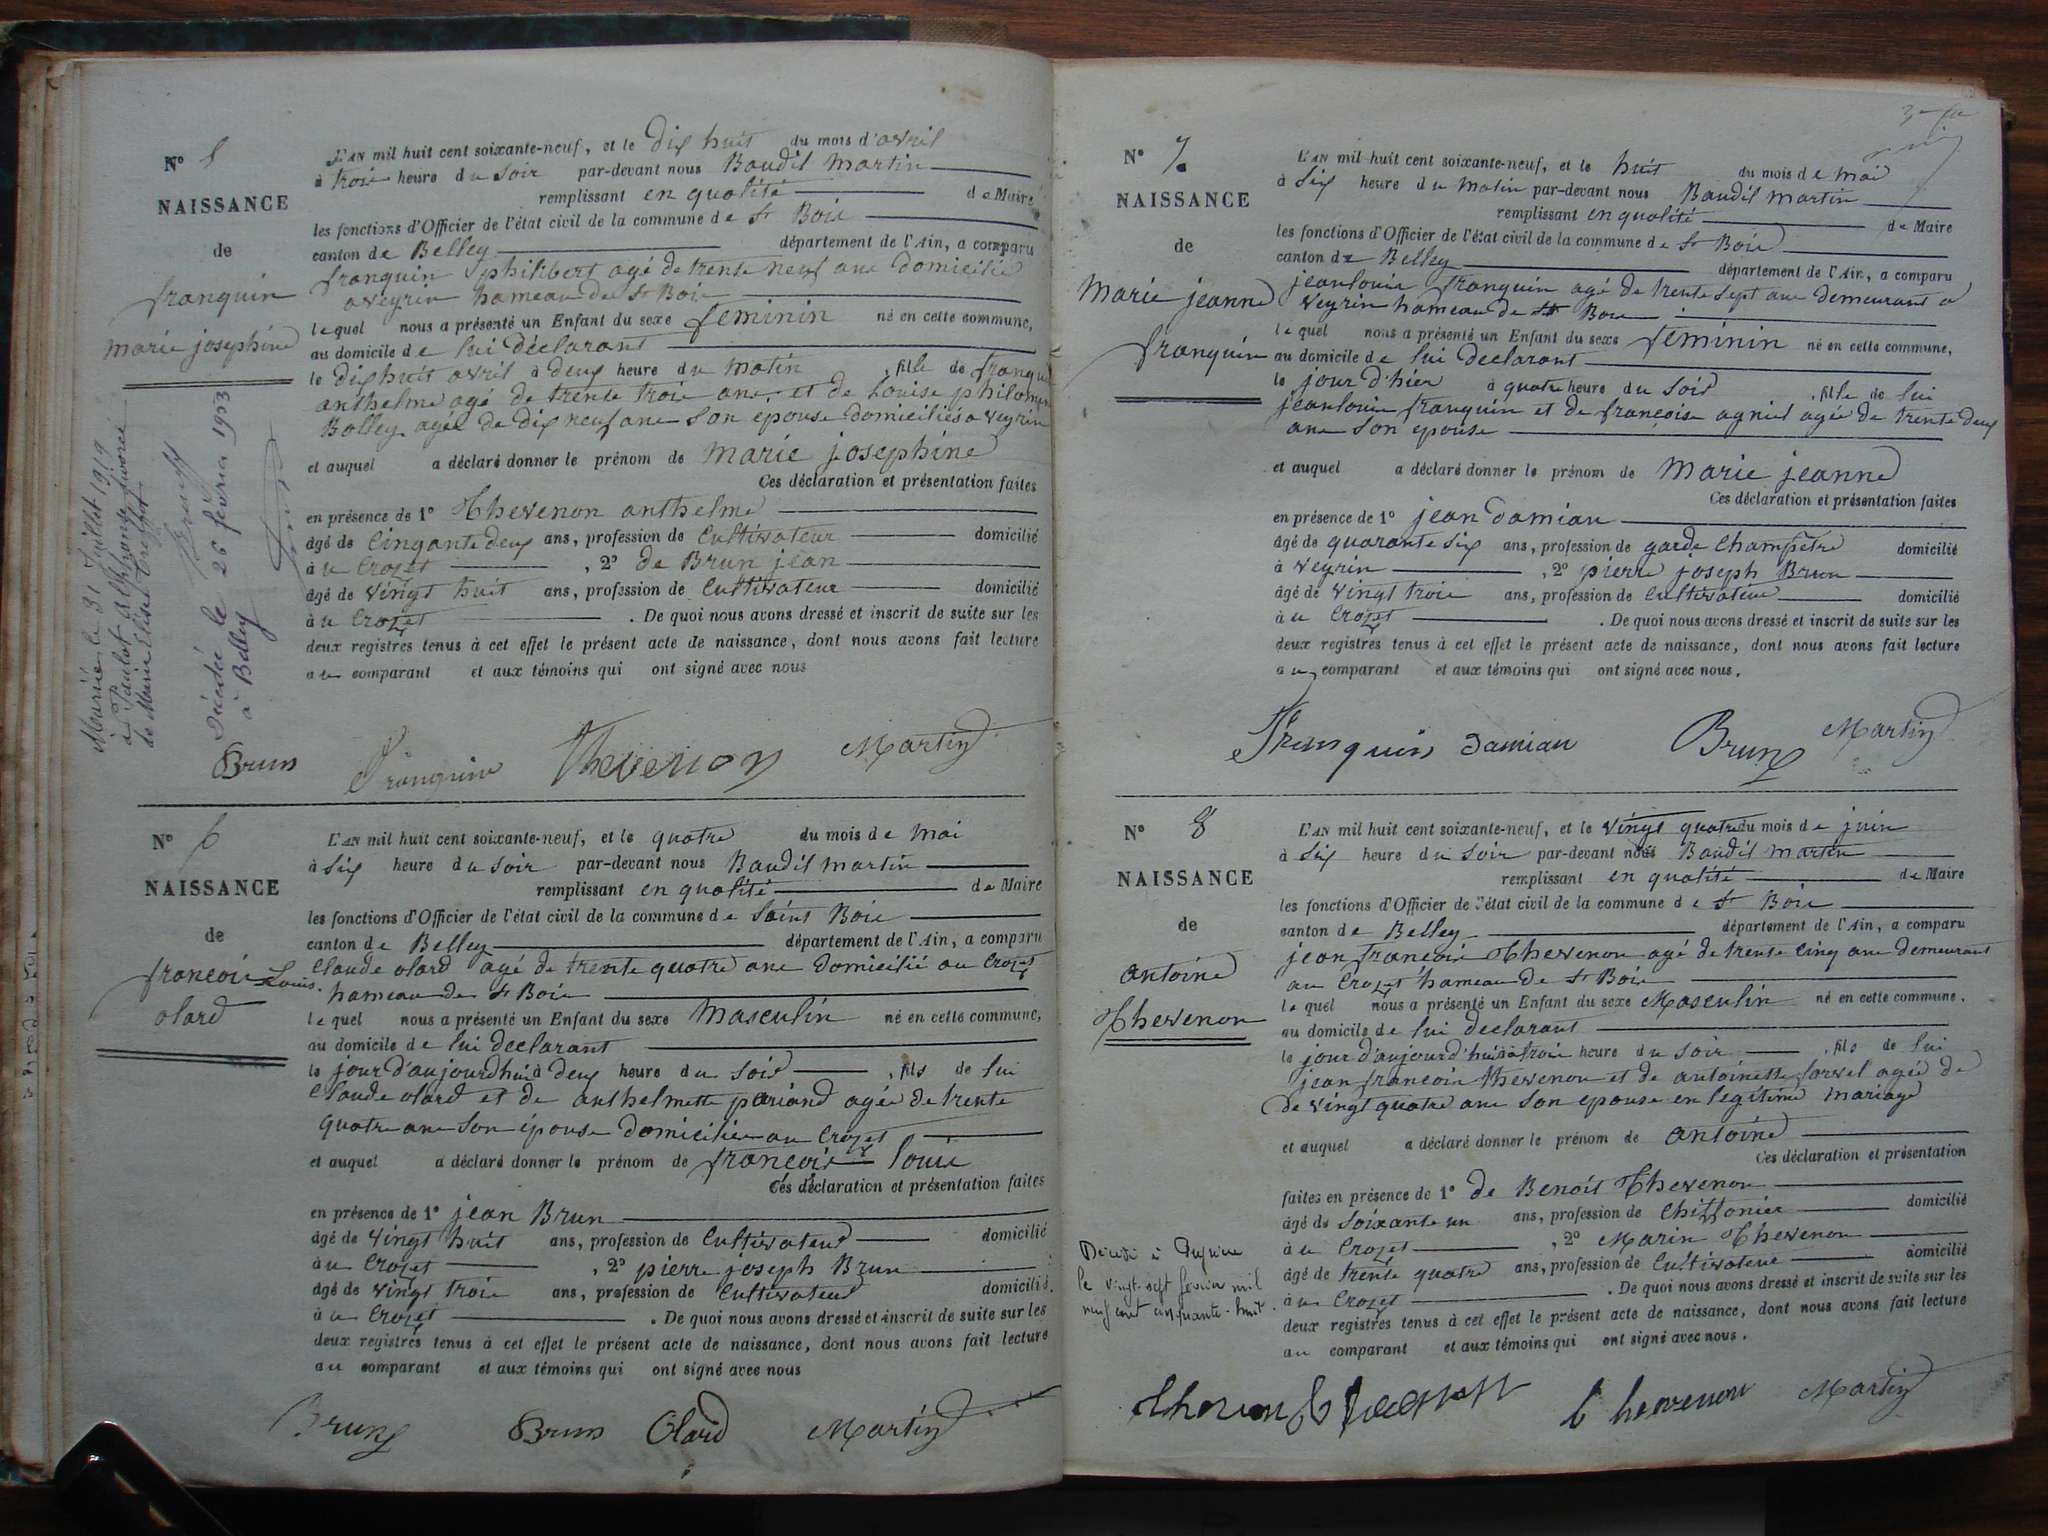 N° 5
NAISSANCE
de
franquin
marie josephine
L'AN mil huit cent soixante-neuf, et le dix huit du mois d'avril
à trois heure du soir par-devant nous Baudil martin
remplissant en qualité de Maire
les fonctions d'Officier de l'état civil de la commune de St Bois
canton de Belley département de l'Ain, a comparu
franquin philibert agé de trente neuf ans domicilié
a veyrin hameau de St Bois
lequel nous a présenté un Enfant du sexe feminin né en cette commune,
au domicile de lui déclarant
le dix huit avril à deux heure du matin , fille de franquin
anthelme agé de trente trois ans et de Louise philomene
Bolley agée de dix neuf ans son épouse domiciliés a veyrin
et auquel a déclaré donner le prénom de marie josephine
Ces déclaration et présentation faites
en présence de 1° Thevenon anthelme
âgé de cinqante deux ans, profession de Cultivateur domicilié
à u Crozet , 2° de Brun jean
âgé de vingt huit ans, profession de Cultivateur domicilié
à u Crozet . De quoi nous avons dressé et inscrit de suite sur les
deux registres tenus à cet effet le présent acte de naissance, dont nous avons fait lecture
au comparant et aux témoins qui ont signé avec nous
Mariée le 31 Juillet 1919
à Paulot Alphonse divorcé
de Marie Elise
Décédée le 26 février 1953
à Belley
Brun Franquin Thevenon Martin
N° 6
NAISSANCE
de
francois Louis
olard
L'AN mil huit cent soixante-neuf, et le quatre du mois de mai
à six heure du soir par-devant nous Baudil martin
remplissant en qualité de Maire
les fonctions d'Officier de l'état civil de la commune de Saint Bois
canton de Belley département de l'Ain, a comparu
Claude olard agé de trente quatre ans domicilié au Crozet
hameau de St Bois
lequel nous a présenté un Enfant du sexe Masculin né en cette commune,
au domicile de lui declarant
le jour d'aujourdhui à deux heure du soir , fils de lui
Claude olard et de anthelmette periand agée de trente
quatre ans son épouse domiciliés au Crozet
et auquel a déclaré donner le prénom de françois louis
Ces déclaration et présentation faites
en présence de 1° jean Brun
âgé de vingt huit ans, profession de Cultivateur domicilié
à u Crozet , 2° pierre joseph Brun
âgé de vingt trois ans, profession de Cultivateur domicilié
à u Crozet . De quoi nous avons dressé et inscrit de suite sur les
deux registres tenus à cet effet le présent acte de naissance, dont nous avons fait lecture
au comparant et aux témoins qui ont signé avec nous
Brun Brun Olard Martin
N° 7
NAISSANCE
de
Marie jeanne
franquin
L'AN mil huit cent soixante-neuf, et le huit du mois de mai
à six heure du matin par-devant nous Baudil martin
remplissant en qualité de Maire
les fonctions d'Officier de l'état civil de la commune de St Bois
canton de Belley département de l'Ain, a comparu
jeanlouis franquin agé de trente sept ans demeurant a
veyrin hameau de St Bois
lequel nous a présenté un Enfant du sexe féminin né en cette commune,
au domicile de lui declarant
le jour d'hier à quatre heure du soir , fille de lui
jeanlouis franquin et de françoise agniel agée de trente deux
ans son epouse
et auquel a déclaré donner le prénom de Marie jeanne
Ces déclaration et présentation faites
en présence de 1° jean damian
âgé de quarante six ans, profession de garde Champêtre domicilié
à veyrin , 2° pierre joseph Brun
âgé de vingt trois ans, profession de Cultivateur domicilié
à u Crozet . De quoi nous avons dressé et inscrit de suite sur les
deux registres tenus à cet effet le présent acte de naissance, dont nous avons fait lecture
au comparant et aux témoins qui ont signé avec nous.
Franquin Damian Brun Martin
N° 8
NAISSANCE
de
antoine
Thevenon
L'AN mil huit cent soixante-neuf, et le vingt quatre du mois de juin
à six heure du soir par-devant nous Baudil martin
remplissant en qualité de Maire
les fonctions d'Officier de l'état civil de la commune de St Bois
canton de Belley département de l'Ain, a comparu
jean francois Thevenon agé de trente cinq ans demeurant
au Crozet hameau de St Bois
lequel nous a présenté un Enfant du sexe Masculin né en cette commune.
au domicile de lui declarant
le jour d'aujourd'hui à trois heure du soir , fils de lui
jean francois thevenon et de antoinette agée de
de vingt quatre ans son epouse en legitime mariage
et auquel a déclaré donner le prénom de antoine
Ces déclaration et présentation
faites en présence de 1° de Benoit Thevenon
âgé de soixante un ans, profession de Chiffonier domicilié
à u Crozet , 2° Marin Thevenon
âgé de trente quatre ans, profession de Cultivateur domicilié
à u Crozet . De quoi nous avons dressé et inscrit de suite sur les
deux registres tenus à cet effet le présent acte de naissance, dont nous avons fait lecture
au comparant et aux témoins qui ont signé avec nous.
Décédé à
le vingt-sept février mil
neuf cent cinquante-huit.
thevenon Martin